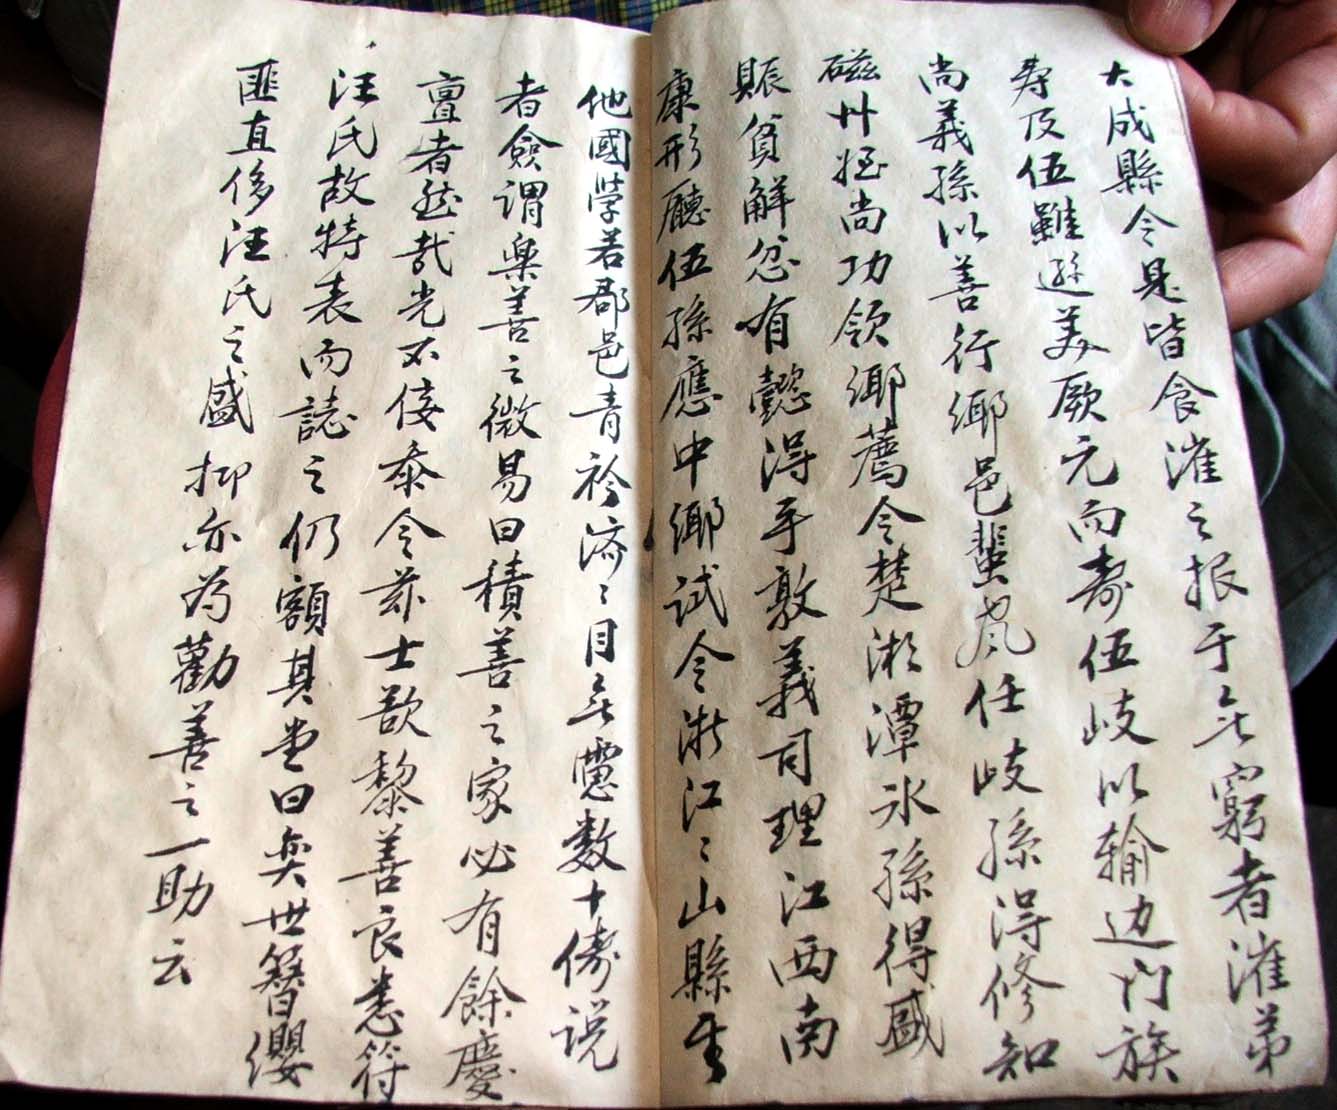 大成縣令是皆食漼之报于无窮者漼弟
寿及伍雖遜美厥元而壽伍岐以输边门族
尚義孫以善行鄉邑蜚声任岐孫淂修知
磁州姪尚功领鄉薦令楚湘潭永孫得盛
賑貧解忿有懿淂手敦義司理江西南
康形廳伍孫應中鄉試令淅江江山縣生
他國学若郡邑青衿济〻目无慮数十俦说
者僉謂樂善之徴易曰積善之家必有餘慶
亶者然哉光不佞忝令兹士欲黎善良悉符
汪氏故特表而誌之仍額其堂曰奕世簪纓
匪直侈汪氏之盛抑亦为勸善之一助云